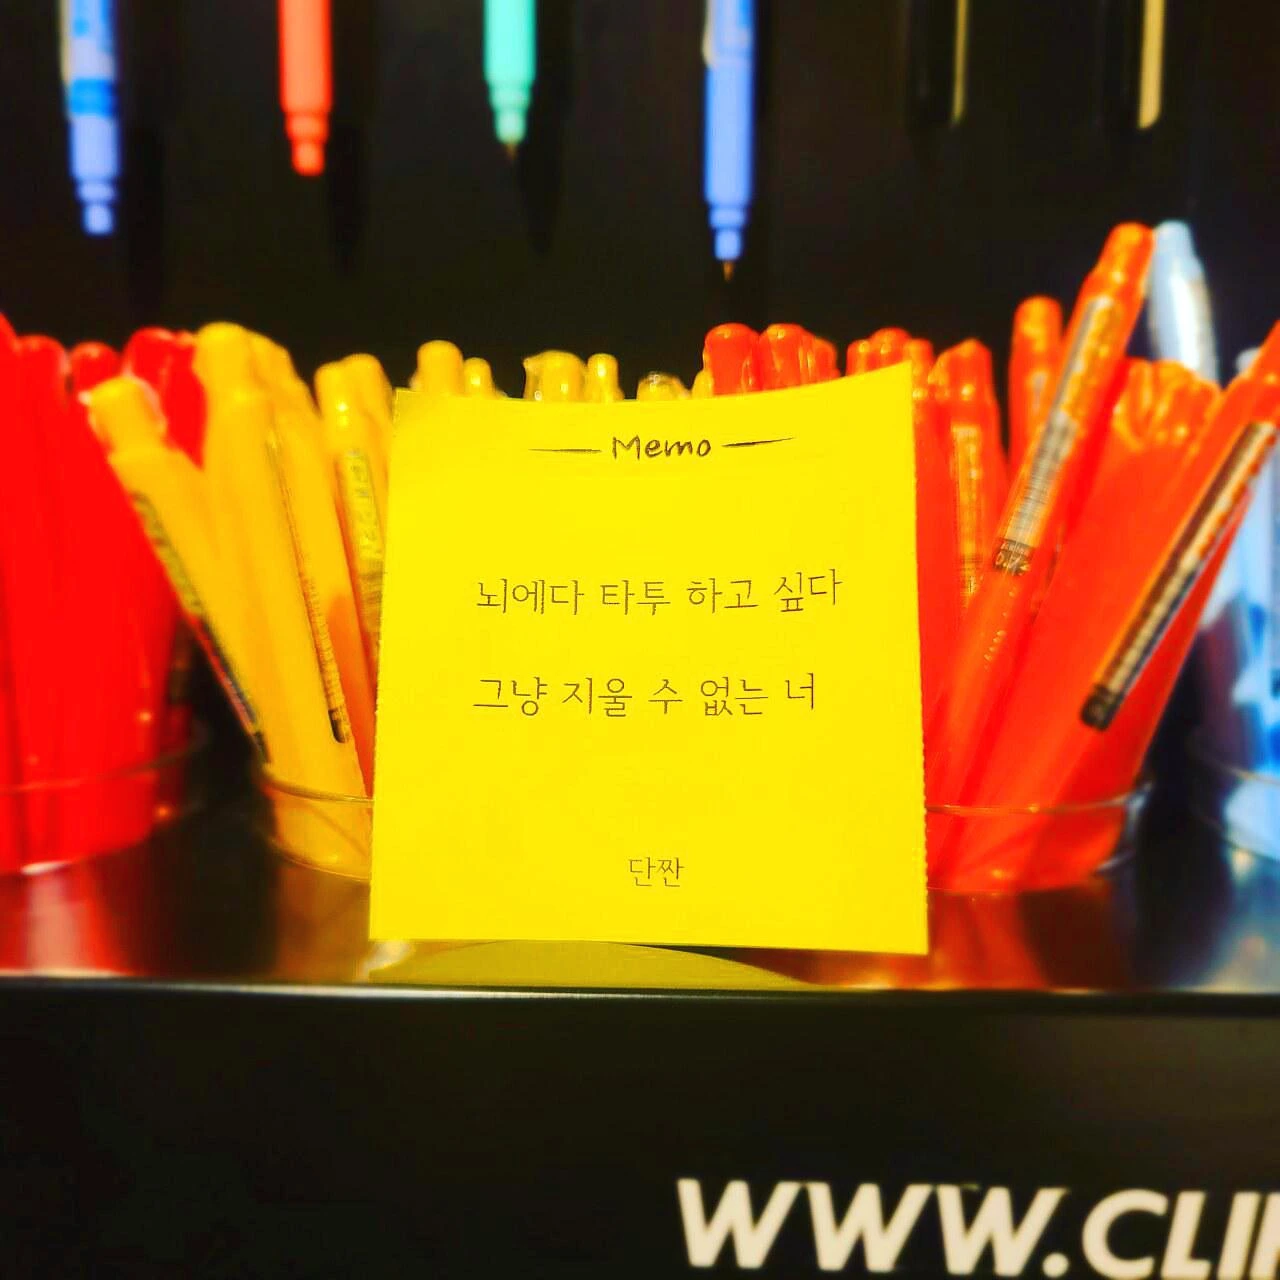 Memo
뇌에다 타투 하고 싶다
그냥 지울 수 없는 너
단짠
WWW.CLI